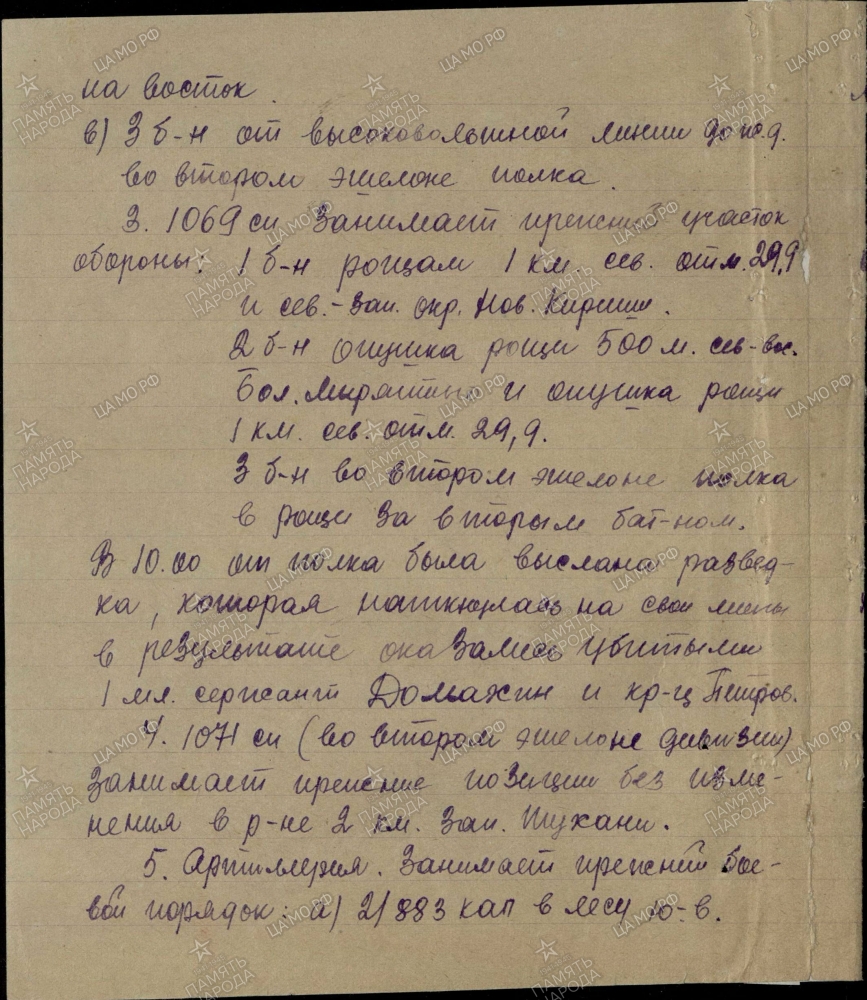 на восток.
в) 3 б-н от высоковольтной линии до ж.д.
во втором эшелоне полка.
3. 1069 сп занимает прежний участок
обороны: 1 б-н рощам 1 км. сев. отм. 29,9
и сев.-зап. окр. Нов. Кириши.
2 б-н опушка рощи 500 м. сев-вос.
Бол. Мирятино и опушка рощи
1 км. сев. отм. 29,9.
3 б-н во втором эшелоне полка
в рощи за вторым бат-ном.
В 10.00 от полка была выслана развед-
ка, которая наткнулась на свои мины
в результате оказались убитыми
1 мл. сержант Домахин и кр-ц Петров.
4. 1071 сп (во втором эшелоне дивизии)
занимает прежние позиции без изме-
нения в р-не 2 км. зап. Тухани.
5. Артиллерия. Занимает прежний бое-
вой порядок: а) 2/883 кап в лесу ю-в.